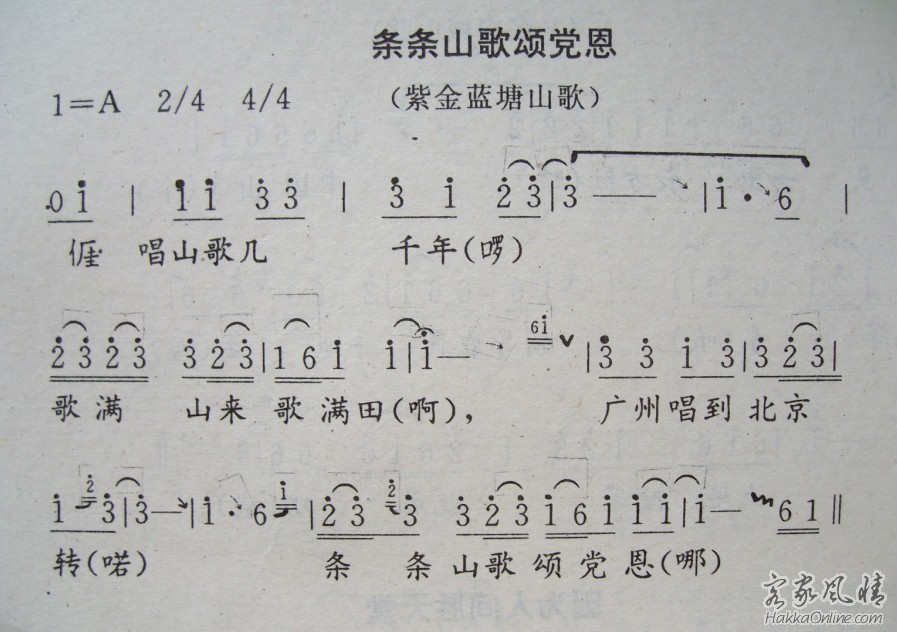 条条山歌颂党恩
1=A 2/4 4/4 (紫金蓝塘山歌)
0 i | i i 3 3 | 3 i 2 3 | 3 — — | i · 6 |
𠊎 唱山歌几 千年(啰)
2 3 2 3 3 2 3 | 1 6 i i | i — 6 i v | 3 3 i 3 | 3 2 3 |
歌满 山来 歌满田(啊), 广州唱到 北京
i 2 3 | 3 — | i · 6 i | 2 3 2 3 3 2 3 i 6 i i i | i — 6 1 ‖
转(喏) 条 条 山歌 颂党恩(哪)
客家风情
HakkaOnline.com